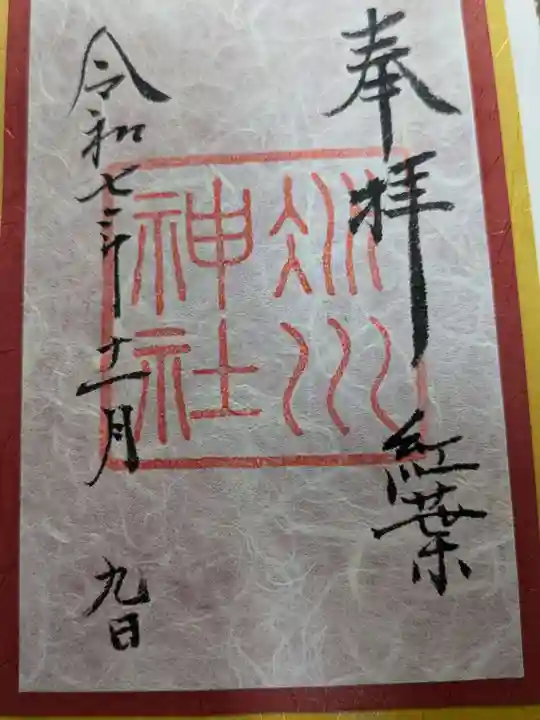 奉拝
紅葉
氷川
神社
令和七年十一月
九日